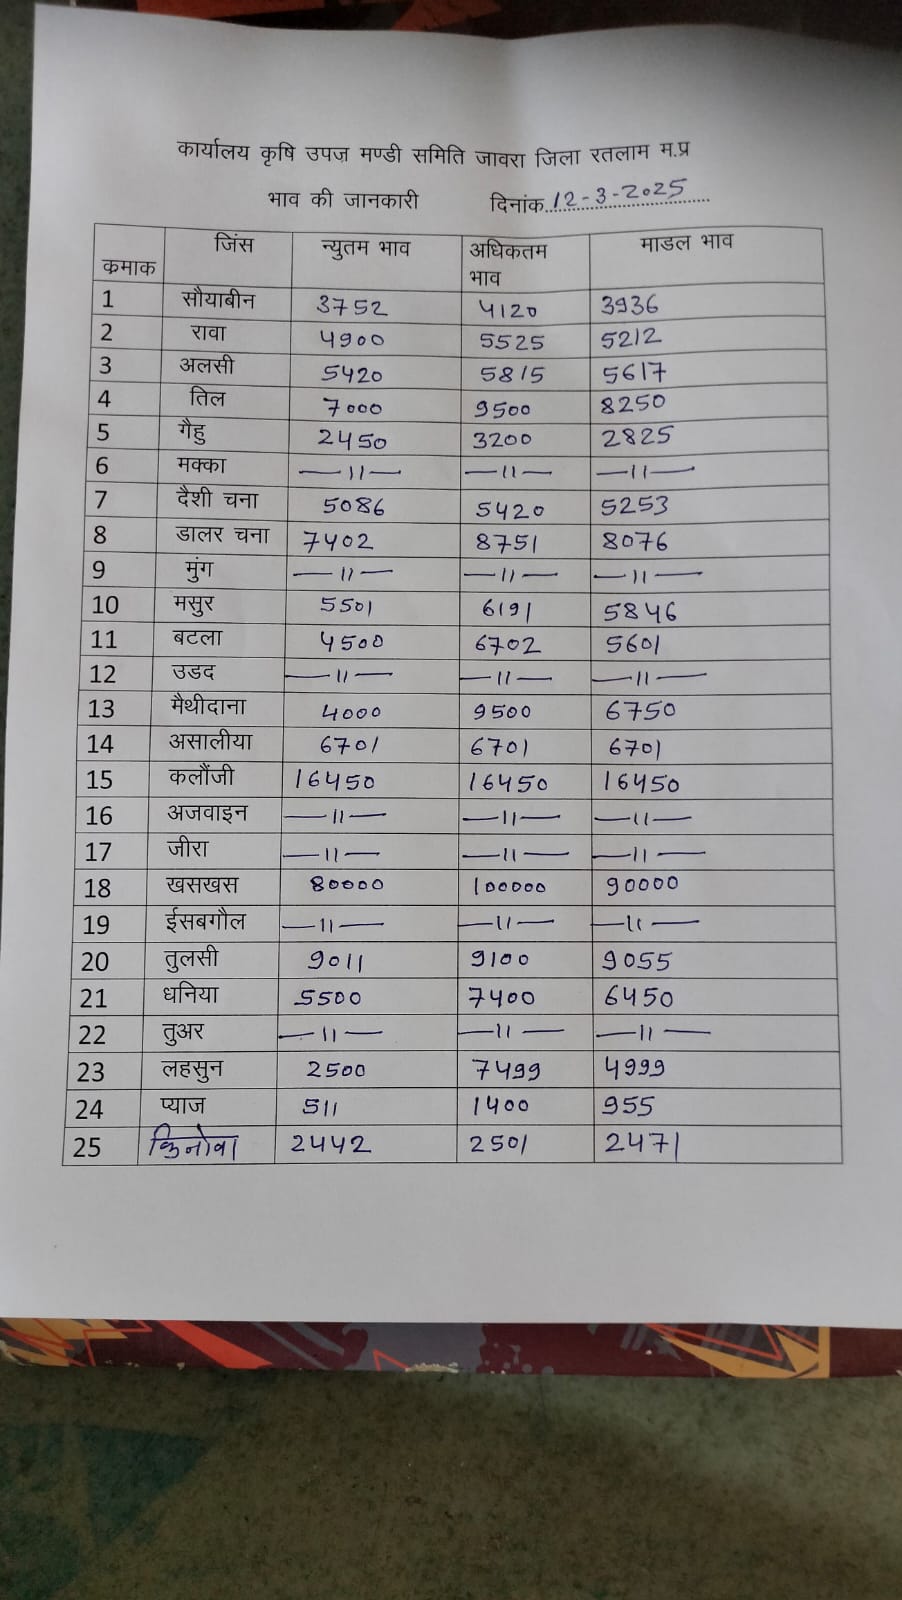 कार्यालय कृषि उपज मण्डी समिति जावरा जिला रतलाम म.प्र
भाव की जानकारी दिनांक 12-3-2025
कमाक जिंस न्युतम भाव अधिकतम भाव माडल भाव
1 सौयाबीन 3752 4120 3936
2 रावा 4900 5525 5212
3 अलसी 5420 5815 5617
4 तिल 7000 9500 8250
5 गैहु 2450 3200 2825
6 मक्का —11— —11— —11—
7 दैशी चना 5086 5420 5253
8 डालर चना 7402 8751 8076
9 मुंग —11— —11— —11—
10 मसुर 5501 6191 5846
11 बटला 4500 6702 5601
12 उडद —11— —11— —11—
13 मैथीदाना 4000 9500 6750
14 असालीया 6701 6701 6701
15 कलौंजी 16450 16450 16450
16 अजवाइन —11— —11— —11—
17 जीरा —11— —11— —11—
18 खसखस 80000 100000 90000
19 ईसबगौल —11— —11— —11—
20 तुलसी 9011 9100 9055
21 धनिया 5500 7400 6450
22 तुअर —11— —11— —11—
23 लहसुन 2500 7499 4999
24 प्याज 511 1400 955
25 किनोवा 2442 2501 2471